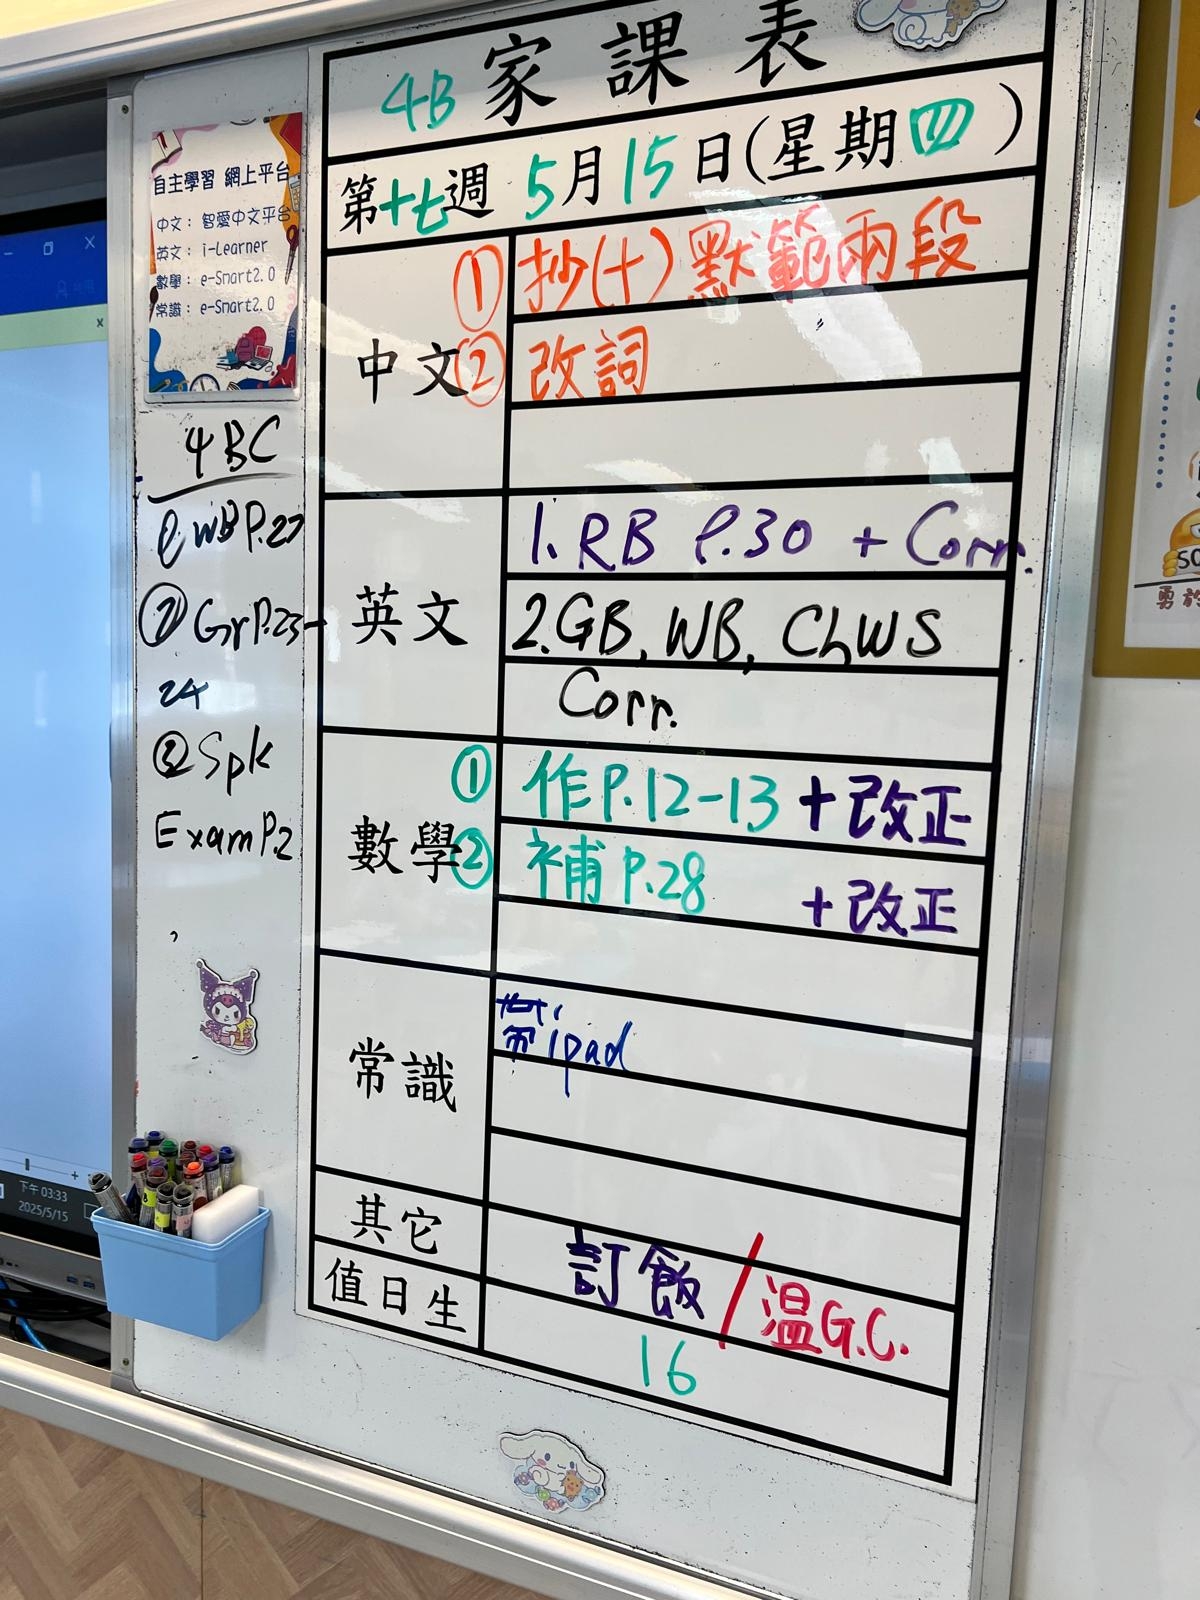 4B 家課表
第十七週 5月15日(星期四)
中文
① 抄(十)默範兩段
② 改詞
英文
1. RB P.30 + Corr.
2. GB, WB, ChWS
Corr.
數學
① 作P.12-13 + 改正
② 補P.28 + 改正
常識
帶ipad
其它
訂飯/温G.C.
值日生
16
自主學習 網上平台
中文： 智愛中文平台
英文： i-Learner
數學： e-Smart2.0
常識： e-Smart2.0
4BC
WB P.27
② Gr P.23-
24
③ Spk
Exam P.2
下午 03:33
2025/5/15